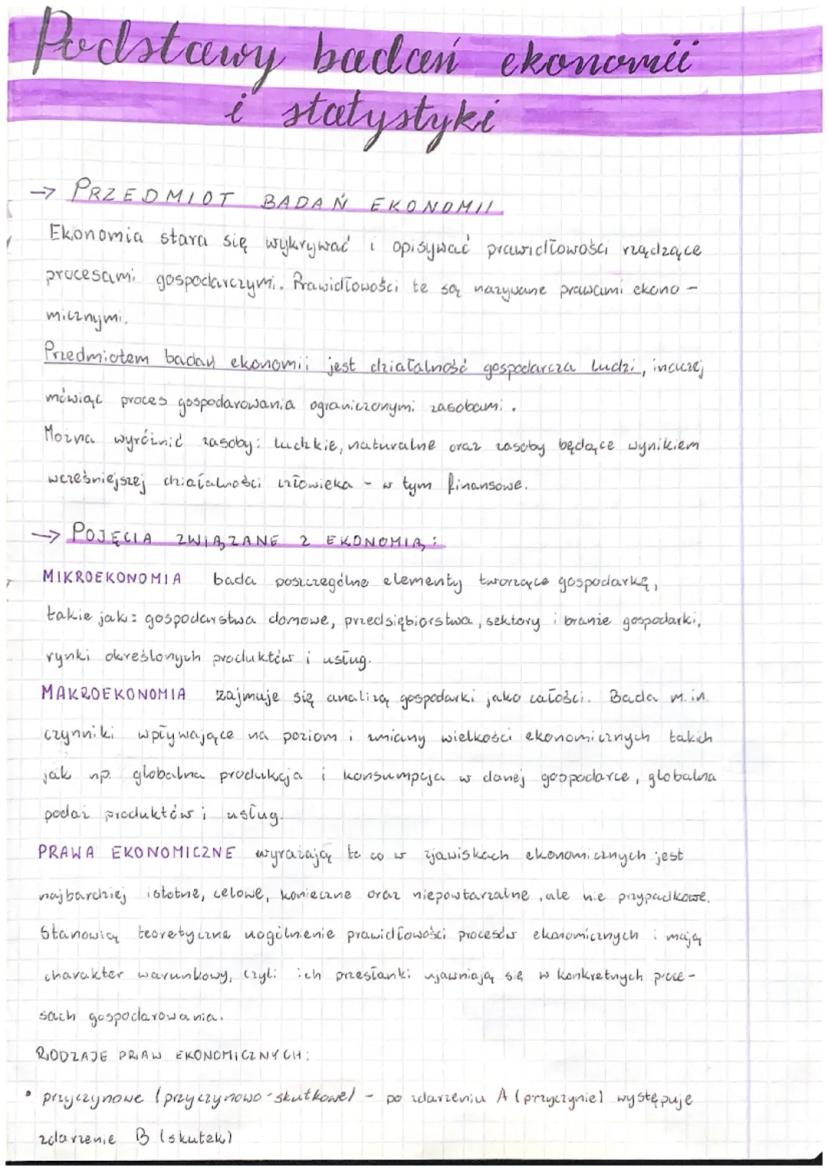 Podstawy badań ekonomii
i statystyki
→ PRZEDMIOT BADAŃ EKONOMII
Ekonomia stara się wykrywać i opisywać prawidłowości rządzące
procesami gospodarczymi. Prawidłowości te są nazywane prawami ekono-
micznymi.
Przedmiotem badań ekonomii jest działalność gospodarcza ludzi, inaczej
mówiąc proces gospodarowania ograniczonymi zasobami.
Można wyróżnić zasoby: ludzkie, naturalne oraz zasoby będące wynikiem
wcześniejszej działalności człowieka - w tym finansowe.
→ POJĘCIA ZWIĄZANE Z EKONOMIĄ:
MIKROEKONOMIA bada poszczególne elementy tworzące gospodarkę,
takie jak: gospodarstwa domowe, przedsiębiorstwa, sektory i branże gospodarki,
rynki określonych produktów i usług.
MAKROEKONOMIA zajmuje się analizą gospodarki jako całości. Bada m.in.
czynniki wpływające na poziom i zmiany wielkości ekonomicznych takich
jak np. globalna produkcja i konsumpcja w danej gospodarce, globalna
podaż produktów i usług.
PRAWA EKONOMICZNE wyrażają to co w zjawiskach ekonomicznych jest
najbardziej istotne, celowe, konieczne oraz niepowtarzalne, ale nie przypadkowe.
Stanowią teoretyczne uogólnienie prawidłowości procesów ekonomicznych i mają
charakter warunkowy, czyli ich przesłanki ujawniają się w konkretnych proce-
sach gospodarowania.
RODZAJE PRAW EKONOMICZNYCH:
• przyczynowe (przyczynowo-skutkowe) - po zdarzeniu A (przyczynie) występuje
zdarzenie B (skutek)